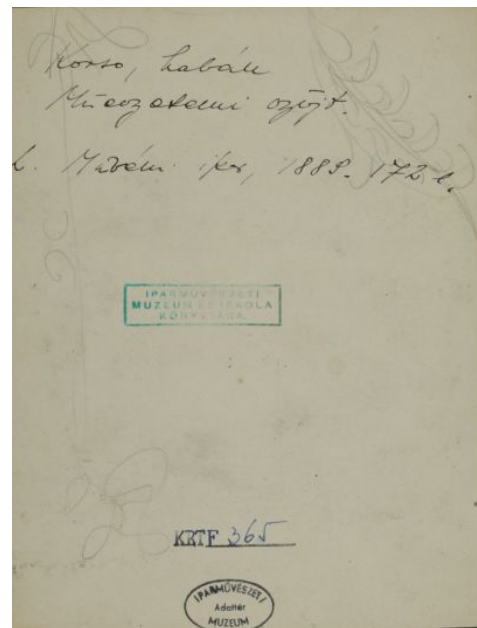 Korso, habán
Műegyetemi gyűjt.
L. Művészi ipar, 1889. 172 l.
IPARMŰVÉSZETI
MUZEUM ÉS ISKOLA
KÖNYVTÁRA
KRTF 365
IPARMŰVÉSZETI
Adattár
MUZEUM